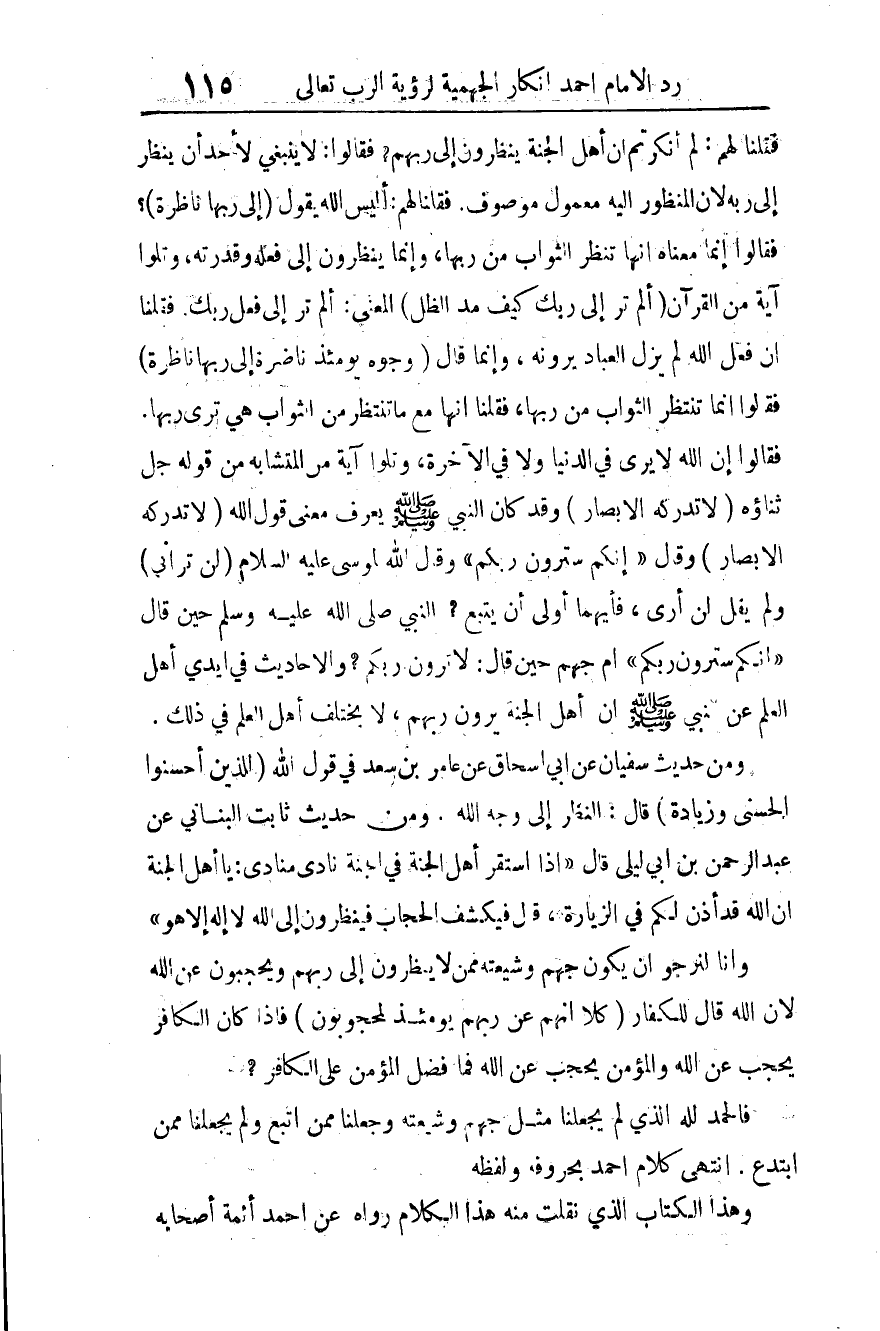 رد الامام احمد انكار الجهمية لرؤية الرب تعالى ١١٥
فقلنا لهم: لم أنكرتم ان أهل الجنة ينظرون إلى ربهم؟ فقالوا: لا ينبغي لأحد أن ينظر
إلى ربه لان المنظور اليه معمول موصوف. فقلنا لهم: أليس الله يقول (إلى ربها ناظرة)؟
فقالوا إنما معناه انها تنظر الثواب من ربها، وإنما ينظرون إلى فعله وقدرته، وتلوا
آية من القرآن (ألم تر إلى ربك كيف مد الظل) المعنى: ألم تر إلى فعل ربك. فقلنا
ان فعل الله لم يزل العباد يرونه، وإنما قال (وجوه يومئذ ناضرة إلى ربها ناظرة)
فقالوا انما تنتظر الثواب من ربها، فقلنا انها مع ما تنتظر من الثواب هي ترى ربها.
فقالوا إن الله لا يرى في الدنيا ولا في الآخرة، وتلوا آية من المتشابه من قوله جل
ثناؤه (لا تدركه الابصار) وقد كان النبي ﷺ يعرف معنى قول الله (لا تدركه
الابصار) وقال «إنكم سترون ربكم» وقال الله لموسى عليه السلام (لن تراني)
ولم يقل لن أرى، فأيهما أولى أن يتبع؟ النبي صلى الله عليه وسلم حين قال
«انكم سترون ربكم» ام جهم حين قال: لا ترون ربكم؟ والاحاديث في ايدي أهل
العلم عن النبي ﷺ ان أهل الجنة يرون ربهم، لا يختلف أهل العلم في ذلك.
ومن حديث سفيان عن ابي اسحاق عن عامر بن سعد في قول الله (الذين أحسنوا
الحسنى وزيادة) قال: النظر إلى وجه الله. ومن حديث ثابت البناني عن
عبد الرحمن بن ابي ليلى قال «اذا استقر أهل الجنة في الجنة نادى منادى: يا أهل الجنة
ان الله قد أذن لكم في الزيارة، قال فيكشف الحجاب فينظرون إلى الله لا إله إلا هو»
وانا لنرجو ان يكون جهم وشيعته ممن لا ينظرون إلى ربهم ويحجبون عن الله
لان الله قال للكفار (كلا انهم عن ربهم يومئذ لمحجوبون) فاذا كان الكافر
يحجب عن الله والمؤمن يحجب عن الله فما فضل المؤمن على الكافر؟
فالحمد لله الذي لم يجعلنا مثل جهم وشيعته وجعلنا ممن اتبع ولم يجعلنا ممن
ابتدع. انتهى كلام احمد بحروفه ولفظه
وهذا الكتاب الذي نقلت منه هذا الكلام رواه عن احمد أئمة أصحابه